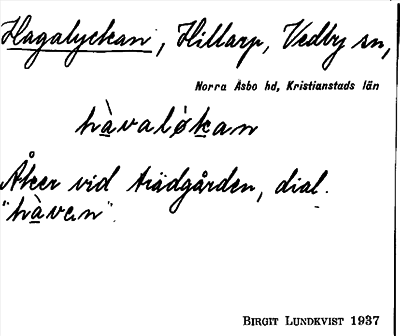 Hagalyckan, Hillarp, Vedby sn,
Norra Åsbo hd, Kristianstads län
hàvaløkan
Åker vid trädgården, dial.
"hàven".
BIRGIT LUNDKVIST 1937